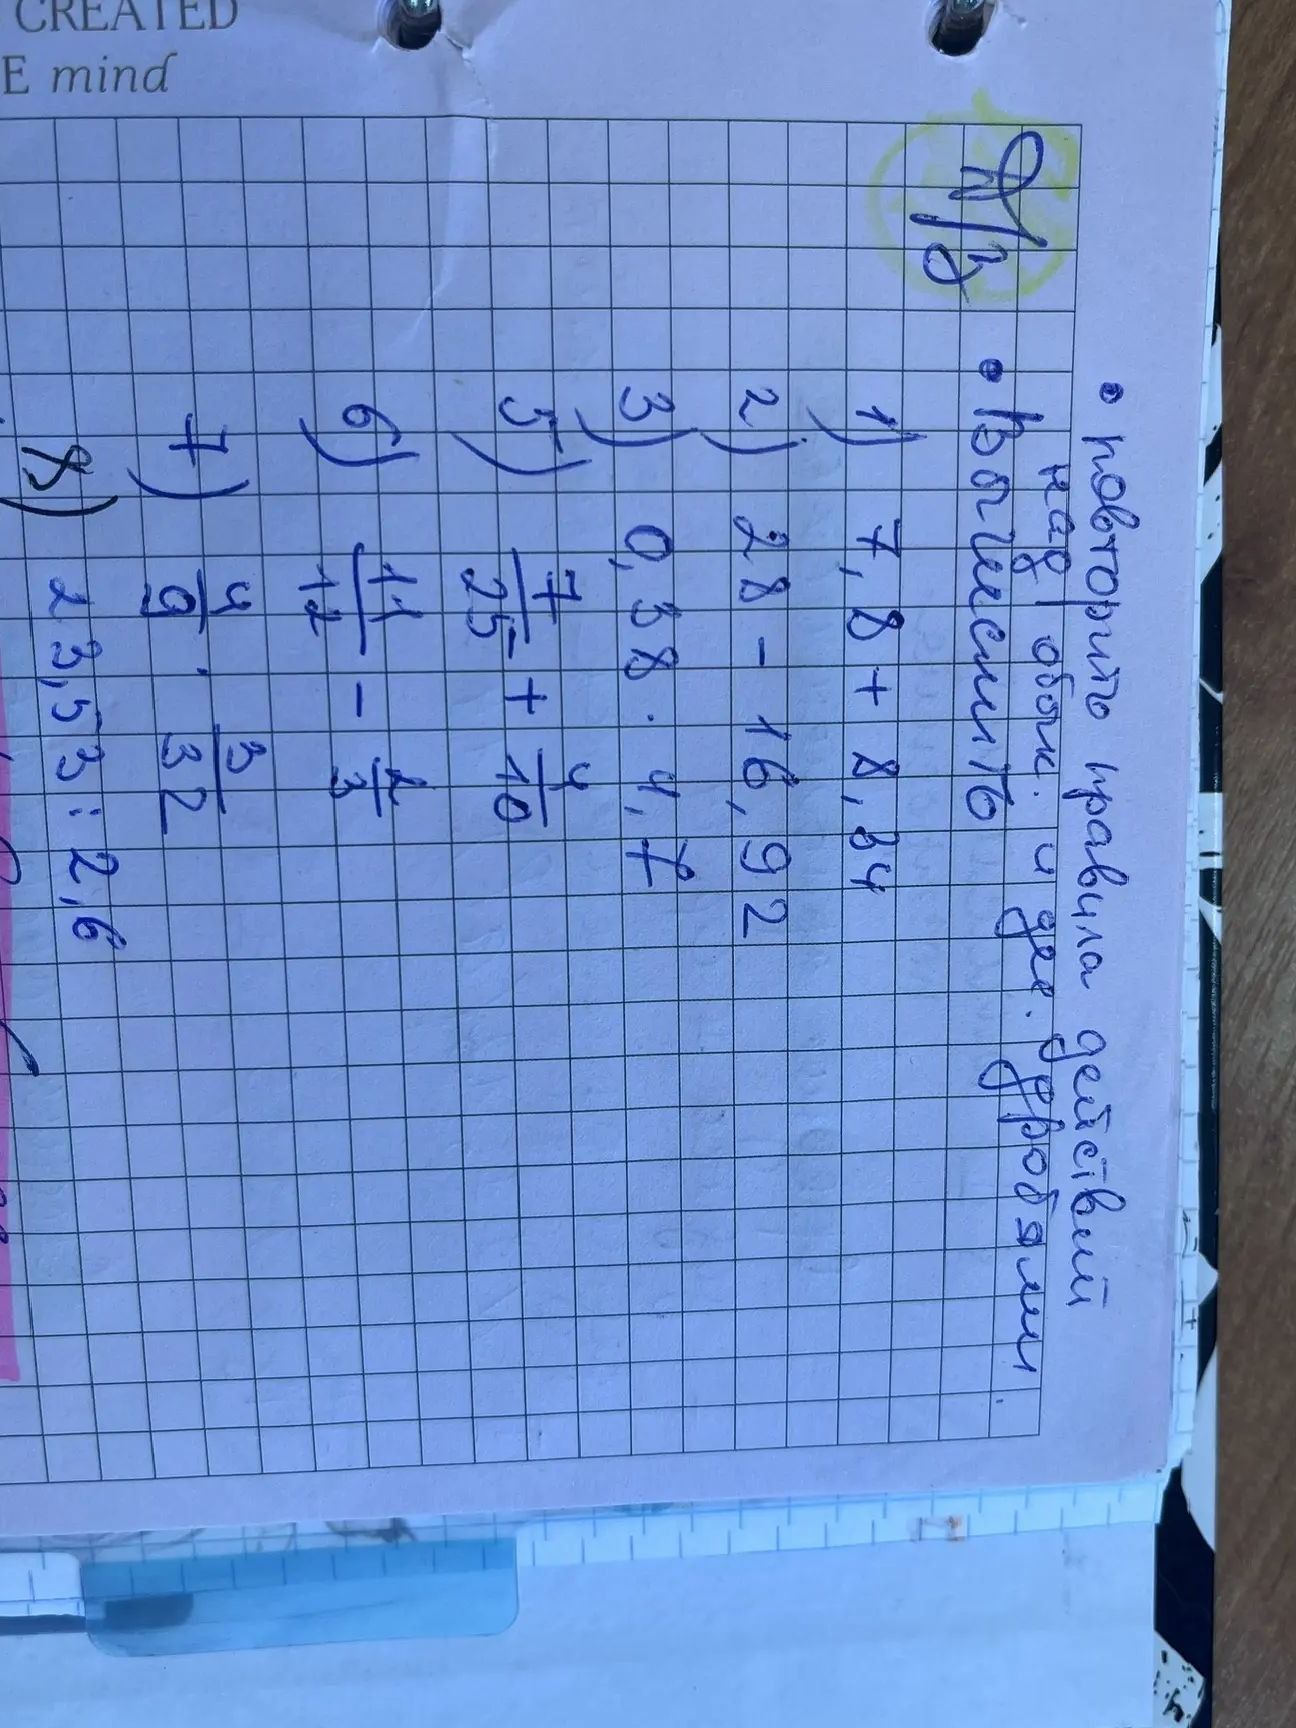 CREATED
E mind
• повторить правила действий
над обык. и дес. дробями.
Д/з • Вычислить
1) 7,8 + 8,84
2) 28 - 16,92
3) 0,38 · 4,7
5) 7/25 + 4/10
6) 11/12 - 2/3
7) 4/9 · 3/32
8) 23,53 : 2,6